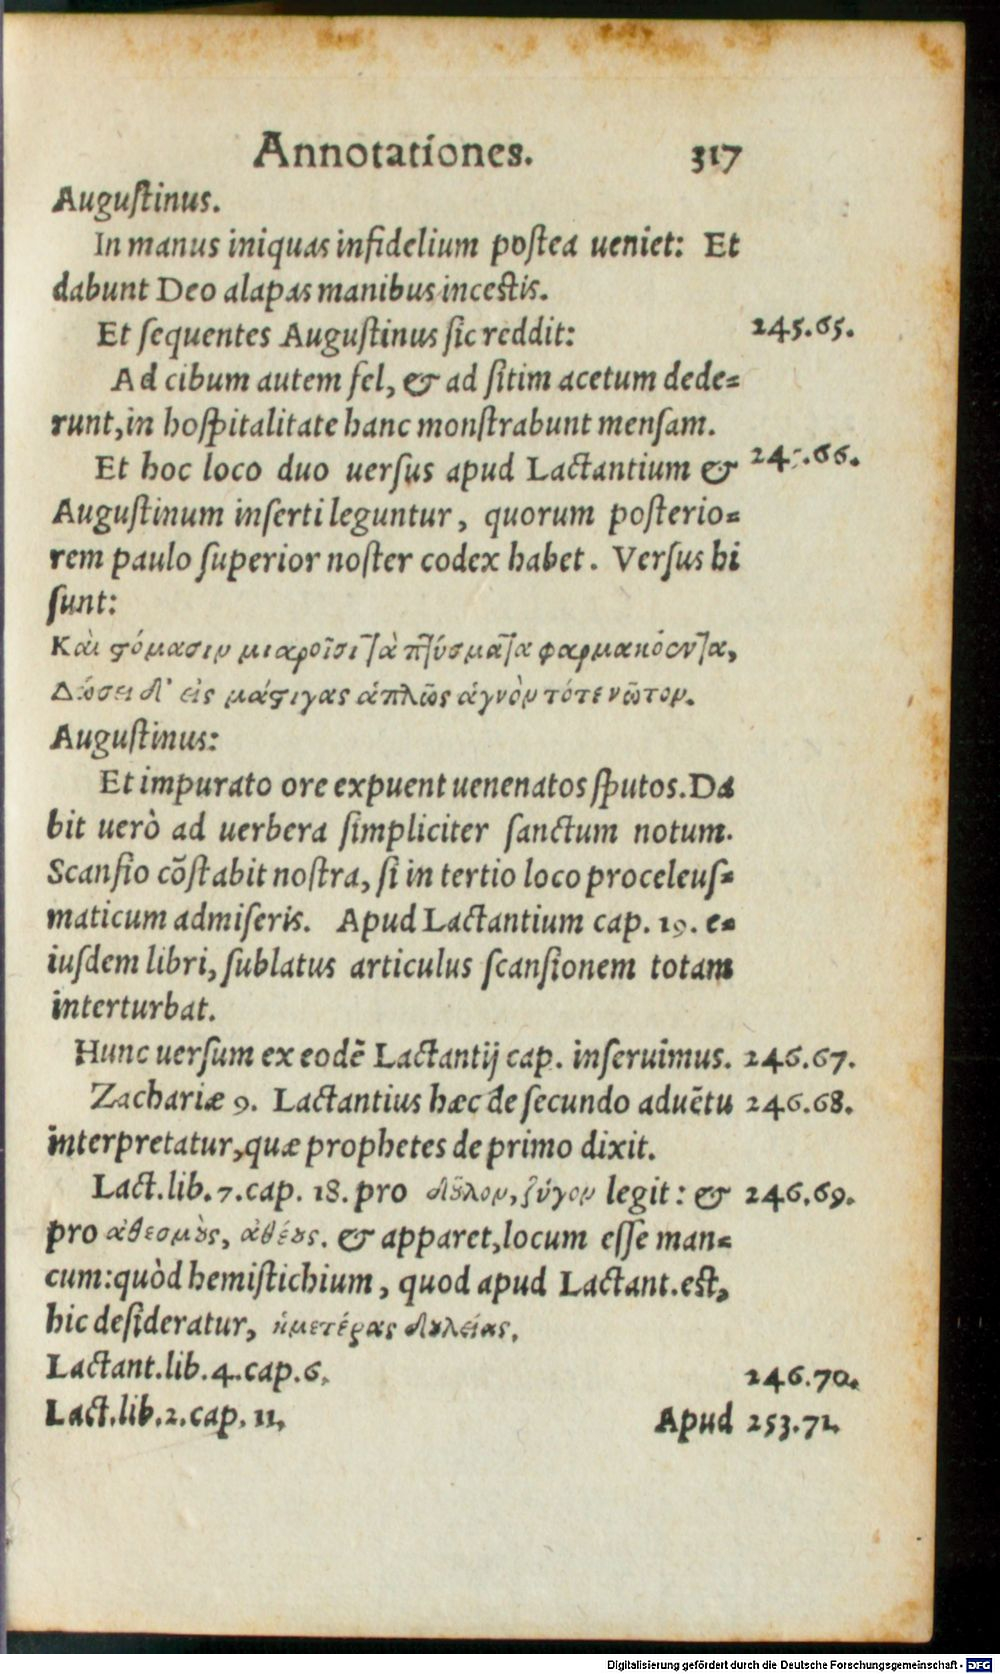 Annotationes. 317
Auguſtinus.
In manus iniquas infidelium poſtea ueniet: Et
dabunt Deo alapas manibus inceſtis.
Et ſequentes Auguſtinus ſic reddit: 245.65.
Ad cibum autem fel, & ad ſitim acetum dede=
runt, in hoſpitalitate hanc monſtrabunt menſam.
Et hoc loco duo uerſus apud Lactantium & .66.
Auguſtinum inſerti leguntur, quorum poſterio=
rem paulo ſuperior noſter codex habet. Verſus hi
ſunt:
Καὶ ϛόμασιν μιαροῖσι τὰ πτύσματα φαρμακόεντα,
Δώσει δ' εἰς μάϛιγας ἁπλῶς ἁγνὸν τότε νῶτον.
Auguſtinus:
Et impurato ore expuent uenenatos ſputos. Da
bit uerò ad uerbera ſimpliciter ſanctum notum.
Scanſio cõſtabit noſtra, ſi in tertio loco proceleuſ=
maticum admiſeris. Apud Lactantium cap. 19. e=
iuſdem libri, ſublatus articulus ſcanſionem totam
interturbat.
Hunc uerſum ex eodē Lactantij cap. inſeruimus. 246.67.
Zachariæ 9. Lactantius hæc de ſecundo aduētu 246.68.
interpretatur, quæ prophetes de primo dixit.
Lact. lib. 7. cap. 18. pro δȣ̃λον, ζύγον legit: & 246.69.
pro ἀθεσμȣ̀ς, ἀθέȣς. & apparet, locum eſſe man=
cum: quòd hemiſtichium, quod apud Lactant. eſt,
hic deſideratur, ἡμετέρας δȣλείας.
Lactant. lib. 4. cap. 6. 246.70.
Lact. lib. 2. cap. 11. Apud 253.71.
Digitalisierung gefördert durch die Deutsche Forschungsgemeinschaft - DFG